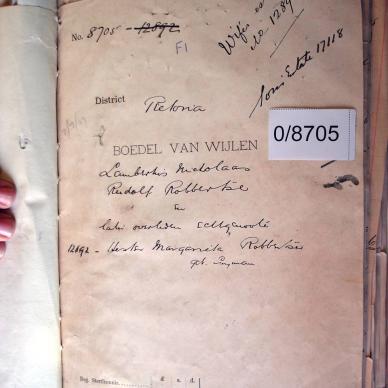 No. 8705 - 12892
F1
Wife's es
No. 1289
Son's Estate 17118
District Pretoria
0/8705
BOEDEL VAN WIJLEN
Lambertus Nicholaas
Rudolf Robbertse
en
later overleden echtgenoote
12892 - Hester Margarita Robbertse
geb.
Reg. Sterfkennis £ s. d.